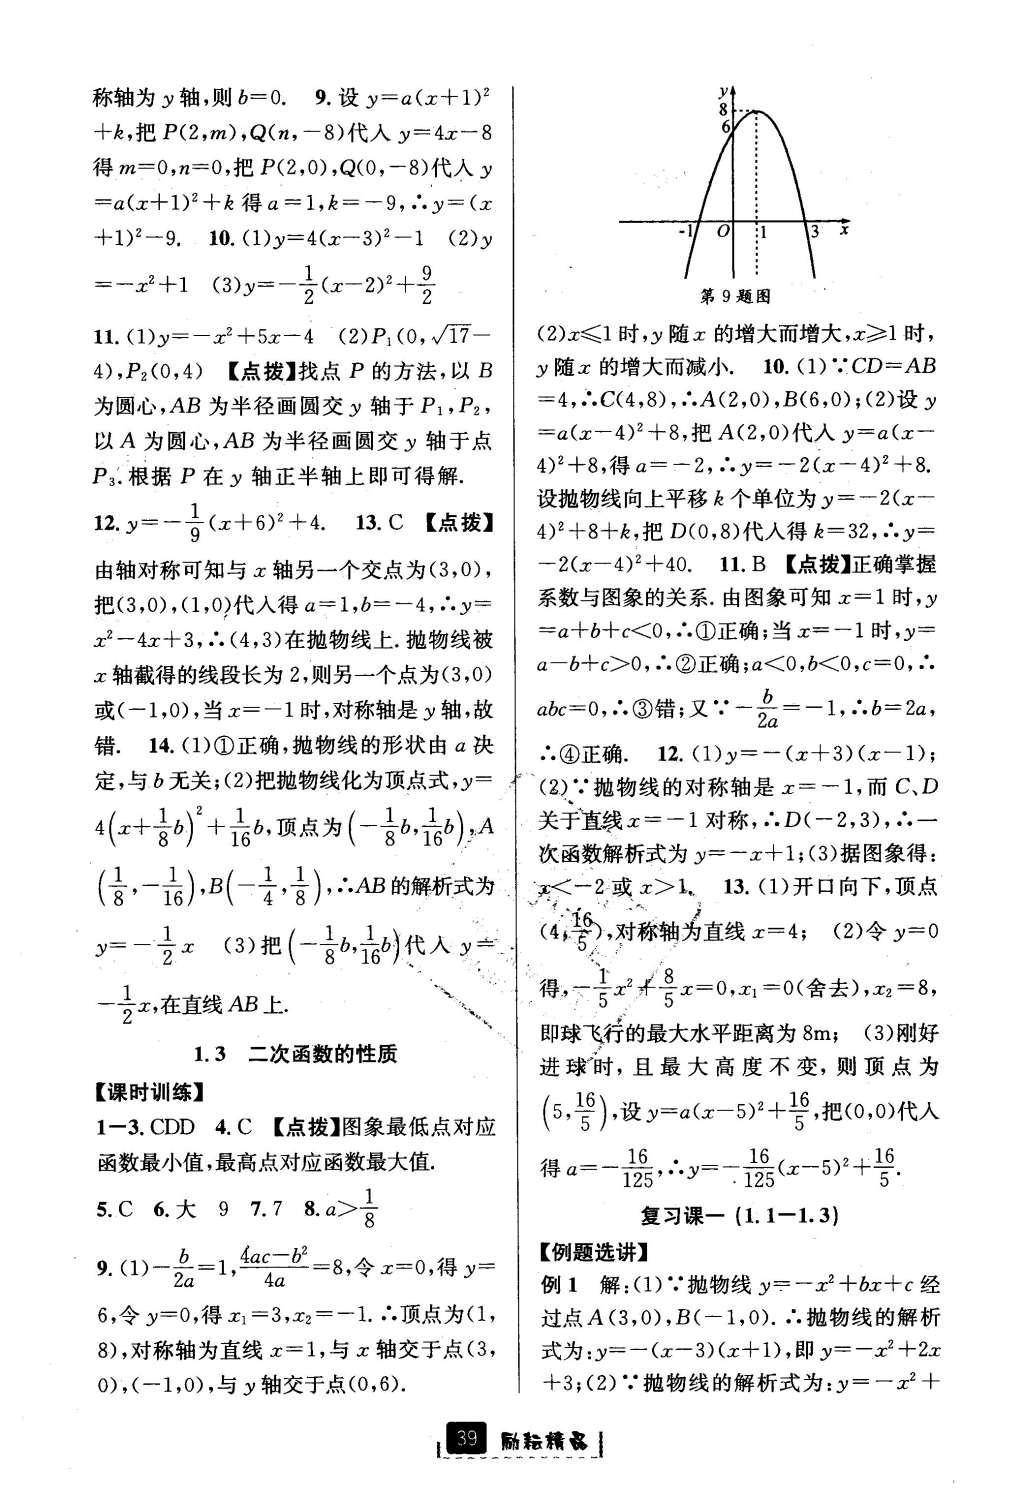 称轴为 y 轴,则 b=0.　9. 设 y=a(x+1)²
+k,把 P(2,m),Q(n,-8)代入 y=4x-8
得 m=0,n=0,把 P(2,0),Q(0,-8)代入 y
=a(x+1)²+k 得 a=1,k=-9,∴y=(x
+1)²-9.　10. (1)y=4(x-3)²-1　(2)y
=-x²+1　(3)y=-1/2(x-2)²+9/2
11. (1)y=-x²+5x-4　(2)P₁(0,√17-
4),P₂(0,4)　【点拨】找点 P 的方法,以 B
为圆心,AB 为半径画圆交 y 轴于 P₁,P₂,
以 A 为圆心,AB 为半径画圆交 y 轴于点
P₃.根据 P 在 y 轴正半轴上即可得解.
12. y=-1/9(x+6)²+4.　13. C　【点拨】
由轴对称可知与 x 轴另一个交点为(3,0),
把(3,0),(1,0)代入得 a=1,b=-4,∴y=
x²-4x+3,∴(4,3)在抛物线上.抛物线被
x 轴截得的线段长为 2,则另一个点为(3,0)
或(-1,0),当 x=-1 时,对称轴是 y 轴,故
错.　14. (1)①正确,抛物线的形状由 a 决
定,与 b 无关;(2)把抛物线化为顶点式,y=
4(x+1/8b)²+1/16b,顶点为(-1/8b,1/16b),A
(1/8,-1/16),B(-1/4,1/8),∴AB 的解析式为
y=-1/2x　(3)把(-1/8b,1/16b)代入 y=
-1/2x,在直线 AB 上.
1.3　二次函数的性质
【课时训练】
1-3. CDD　4. C　【点拨】图象最低点对应
函数最小值,最高点对应函数最大值.
5. C　6. 大　9　7. 7　8. a>1/8
9. (1)-b/2a=1,(4ac-b²)/4a=8,令 x=0,得 y=
6,令 y=0,得 x₁=3,x₂=-1.∴顶点为(1,
8),对称轴为直线 x=1,与 x 轴交于点(3,
0),(-1,0),与 y 轴交于点(0,6).
y
8
6
-1　O　1　3　x
第 9 题图
(2)x≤1 时,y 随 x 的增大而增大,x≥1 时,
y 随 x 的增大而减小.　10. (1)∵CD=AB
=4,∴C(4,8),∴A(2,0),B(6,0);(2)设 y
=a(x-4)²+8,把 A(2,0)代入 y=a(x-
4)²+8,得 a=-2,∴y=-2(x-4)²+8.
设抛物线向上平移 k 个单位为 y=-2(x-
4)²+8+k,把 D(0,8)代入得 k=32,∴y=
-2(x-4)²+40.　11. B　【点拨】正确掌握
系数与图象的关系.由图象可知 x=1 时,y
=a+b+c<0,∴①正确;当 x=-1 时,y=
a-b+c>0,∴②正确;a<0,b<0,c=0,∴
abc=0,∴③错;又∵-b/2a=-1,∴b=2a,
∴④正确.　12. (1)y=-(x+3)(x-1);
(2)∵抛物线的对称轴是 x=-1,而 C、D
关于直线 x=-1 对称,∴D(-2,3),∴一
次函数解析式为 y=-x+1;(3)据图象得:
x<-2 或 x>1.　13. (1)开口向下,顶点
(4,16/5),对称轴为直线 x=4;　(2)令 y=0
得,-1/5x²+8/5x=0,x₁=0(舍去),x₂=8,
即球飞行的最大水平距离为 8m;　(3)刚好
进球时,且最大高度不变,则顶点为
(5,16/5),设 y=a(x-5)²+16/5,把(0,0)代入
得 a=-16/125,∴y=-16/125(x-5)²+16/5.
复习课一(1.1-1.3)
【例题选讲】
例 1　解:(1)∵抛物线 y=-x²+bx+c 经
过点 A(3,0),B(-1,0).∴抛物线的解析
式为:y=-(x-3)(x+1),即 y=-x²+2x
+3;(2)∵抛物线的解析式为:y=-x²+
39　励耘精品